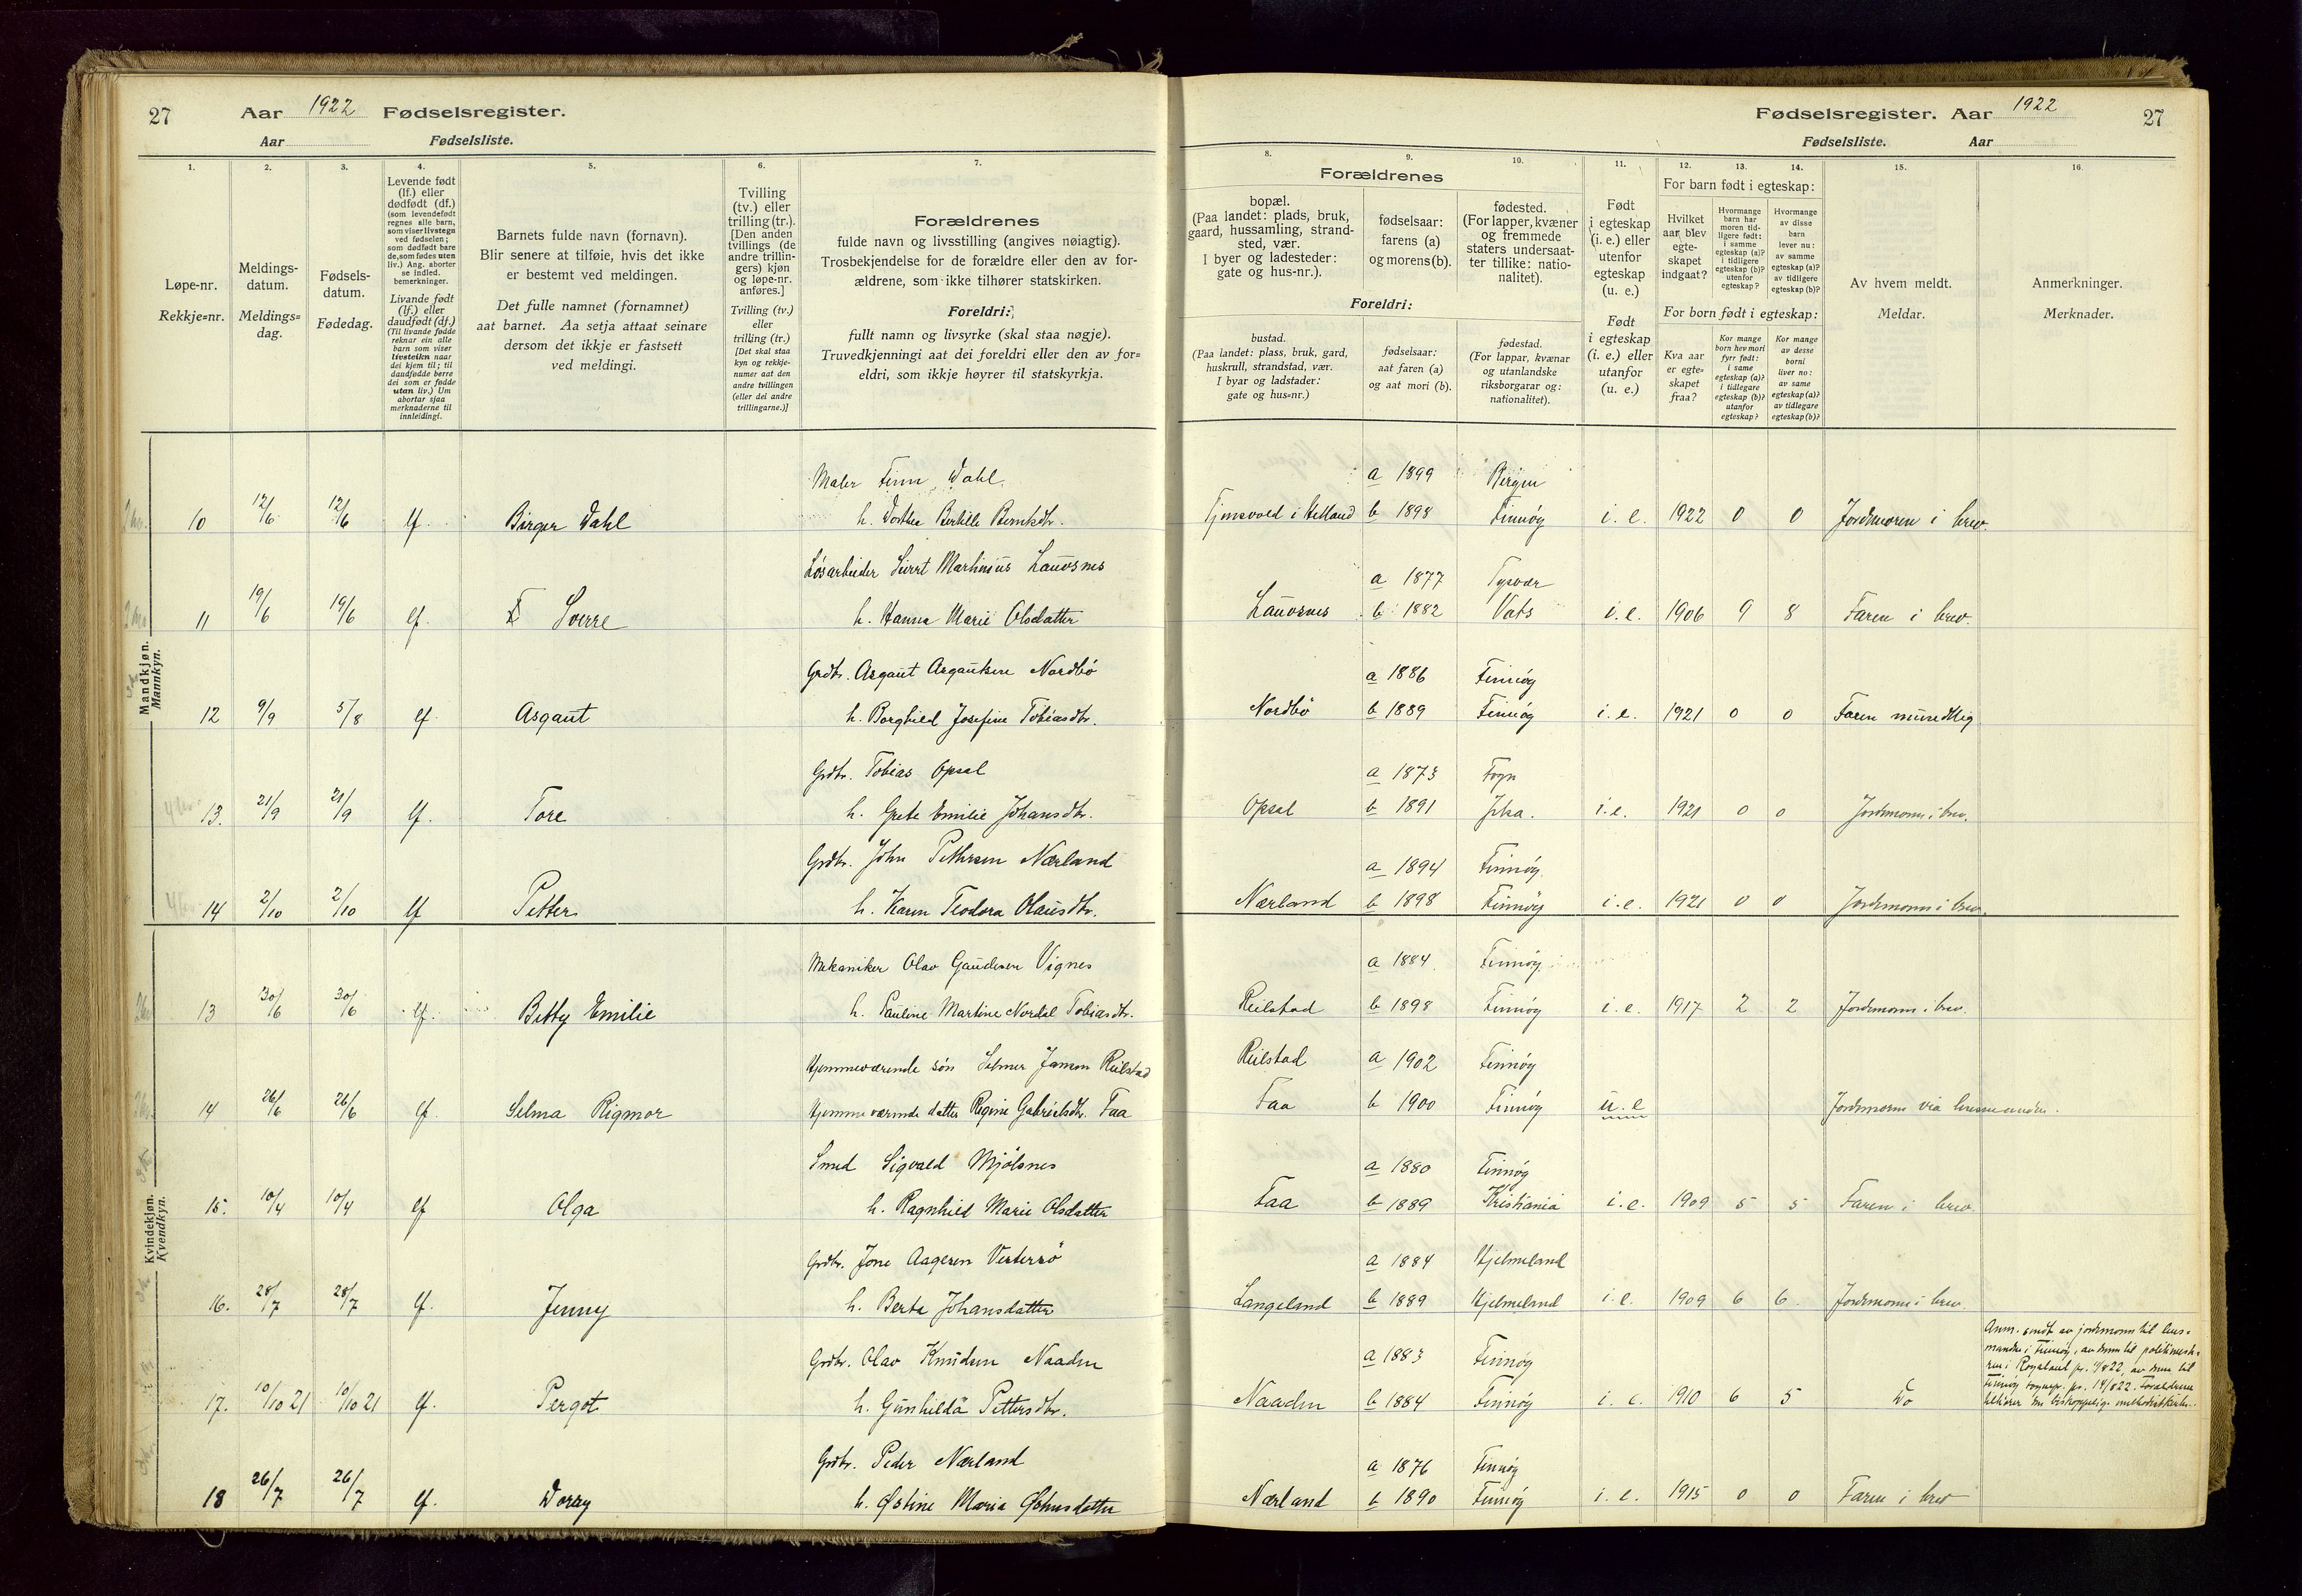 27 Aar 1922 Fødselsregister.
Aar Fødselsliste.
Fødselsregister. Aar 1922 27
Fødselsliste. Aar
1. 2. 3. 4. 5. 6. 7.
8. 9. 10. 11. 12. 13. 14. 15. 16.
Løpe-nr.
Rekkje=nr.
Meldings-
datum.
Meldings=
dag.
Fødsels-
datum.
Fødedag.
Levende født
(lf.) eller
dødfødt (df.)
(som levendefødt
regnes alle barn,
som viser livstegn
ved fødselen;
som dødfødt bare
de, som fødes uten
liv.) Ang. aborter
se indled.
bemerkninger.
Livande født
(lf.) eller
daudfødt (df.)
(Til livande fødde
reknar ein alle
barn som viser
livsteikn naar
dei kjem til; til
daudfødde berre
dei som er fødde
utan liv.) Um
abortar sjaa
merknaderne til
innleidingi.
Barnets fulde navn (fornavn).
Blir senere at tilføie, hvis det ikke
er bestemt ved meldingen.
Det fulle namnet (fornamnet)
aat barnet. Aa setja attaat seinare
dersom det ikkje er fastsett
ved meldingi.
Tvilling
(tv.) eller
trilling (tr.).
[Den anden
tvillings (de
andre trillin-
gers) kjøn
og løpe-nr.
anføres.]
Tvilling (tv.)
eller
trilling (tr.)
[Det skal staa
kyn og rekkje-
numer aat den
andre tvillingen
(eller dei andre
trillingarne.)]
Forældrenes
fulde navn og livsstilling (angives nøiagtig).
Trosbekjendelse for de forældre eller den av for-
ældrene, som ikke tilhører statskirken.
Foreldri:
fullt namn og livsyrke (skal staa nøgje).
Truvedkjenningi aat dei foreldri eller den av for=
eldri, som ikkje høyrer til statskyrkja.
Forældrenes
bopæl.
(Paa landet: plads, bruk,
gaard, hussamling, strand-
sted, vær.
I byer og ladesteder:
gate og hus-nr.).
fødselsaar:
farens (a)
og morens (b).
fødested.
(For lapper, kvæner
og fremmede
staters undersaat-
ter tillike: natio-
nalitet).
Foreldri:
bustad.
(Paa landet: plass, bruk, gard,
huskrull, strandstad, vær.
I byar og ladstader:
gate og hus=nr.)
fødselsaar:
aat faren (a)
og aat mori (b).
fødestad.
(For lappar, kvænar
og utanlandske
riksborgarar og:
nationalitet).
Født
i egteskap
(i. e.) eller
utenfor
egteskap
(u. e.)
Født
i egteskap
(i. e.) eller
utanfor
(u. e.)
For barn født i egteskap:
Hvilket
aar blev
egte-
skapet
indgaat?
Hvormange
barn har
moren tid-
ligere født:
i samme
egteskap (a)?
i tidligere
egteskap (b)?
utenfor
egteskap?
Hvormange
av disse
barn
lever nu:
av samme
egteskap (a)?
av tidligere
egteskap (b)?
For born født i egteskap:
Kva aar
er egte-
skapet
fraa?
Kor mange
born hev mori
fyrr født:
i same
egteskap (a)?
i tidlegare
egteskap (b)?
utanfor
egteskap?
Kor mange
av desse
borni
liver no:
av same
egteskap (a)?
av tidlegare
egteskap (b)?
Av hvem meldt.
Meldar.
Anmerkninger.
Merknader.
Mandkjøn.
Mannkyn.
Maler Finn Dahl a 1899 Bergen
10 12/6 12/6 lf. Birger Dahl h. Dorthea Bertille Berntsdtr. Tjensvold i Hetland b 1898 Finnøy i. e. 1922 0 0 Jordmoren i brev
Løsarbeider Sivert Martinius Lauvsnes a 1877 Tysvær
11 19/6 19/6 lf. Sverre h. Hanna Marie Olsdatter Lauvsnes b 1882 Vats i. e. 1906 9 8 Faren i brev.
Grdbr. Asgaut Asgautsen Nordbø a 1886 Finnøy
12 9/9 5/8 lf. Asgaut h. Borghild Josefine Tobiasdtr. Nordbø b 1889 Finnøy i. e. 1921 0 0 Faren mundtlig
Grdbr. Tobias Opsal a 1873 Fogn
13. 21/9 21/9 lf. Tore h. Grete Emilie Johansdtr. Opsal b 1891 Jelsa. i. e. 1921 0 0 Jordmoren i brev.
Grdbr. John Pettersen Nærland a 1894 Finnøy.
14 2/10 2/10 lf Petter h. Karen Teodora Olausdtr. Nærland b 1898 Finnøy i. e. 1921 0 0 Jordmoren i brev.
Kvindekjøn.
Kvendkyn.
Mekaniker Olav Gaudesen Vignes a 1884 Finnøy
13 30/6 30/6 lf. Betty Emilie h. Pauline Martine Nordal Tobiasdtr. Reilstad b 1898 Finnøy i. e. 1917 2 2 Jordmoren i brev.
Hjemmeværende søn Selmer Jansen Reilstad Reilstad a 1902 Finnøy
14 26/6 26/6 lf. Selma Rigmor Hjemmeværende datter Regine Gabrielsdtr. Faa Faa b 1900 Finnøy u. e Jordmoren via
Smed Sigvald Mjølsnes a 1880 Finnøy
15. 10/4 10/4 lf Olga h. Ragnhild Marie Olsdatter Faa b 1889 Kristiania i. e. 1909 5 5 Faren i brev
Grdbr. Jone Aagesen Vestersø a 1884 Hjelmeland
16. 28/7 28/7 lf. Jenny h. Berta Johansdatter Langeland b 1889 Hjelmeland i. e. 1909 6 6. Jordmoren i brev.
Grdbr. Olav Knudsen Naaden a 1883 Finnøy
17. 10/10 21 10/10 21 lf. Pergot h. Gunhilda Pettersdtr. Naaden b 1884 Finnøy i. e. 1910 6 5 Do
Anm. sendt av jordmoren til lens-
manden i Finnøy, av denne til politimeste-
ren i Rogaland pr. 1/822, av denne til
Finnøy sognepr. pr. 14/822. Forældrene
tilhører den biskoppelige methodistkirke.
Grdbr. Peder Nærland a 1876 Finnøy
18 26/7 26/7 lf. Dorry h. Østine Maria Østensdatter Nærland b 1890 Finnøy i. e. 1915 0 0 Faren i brev